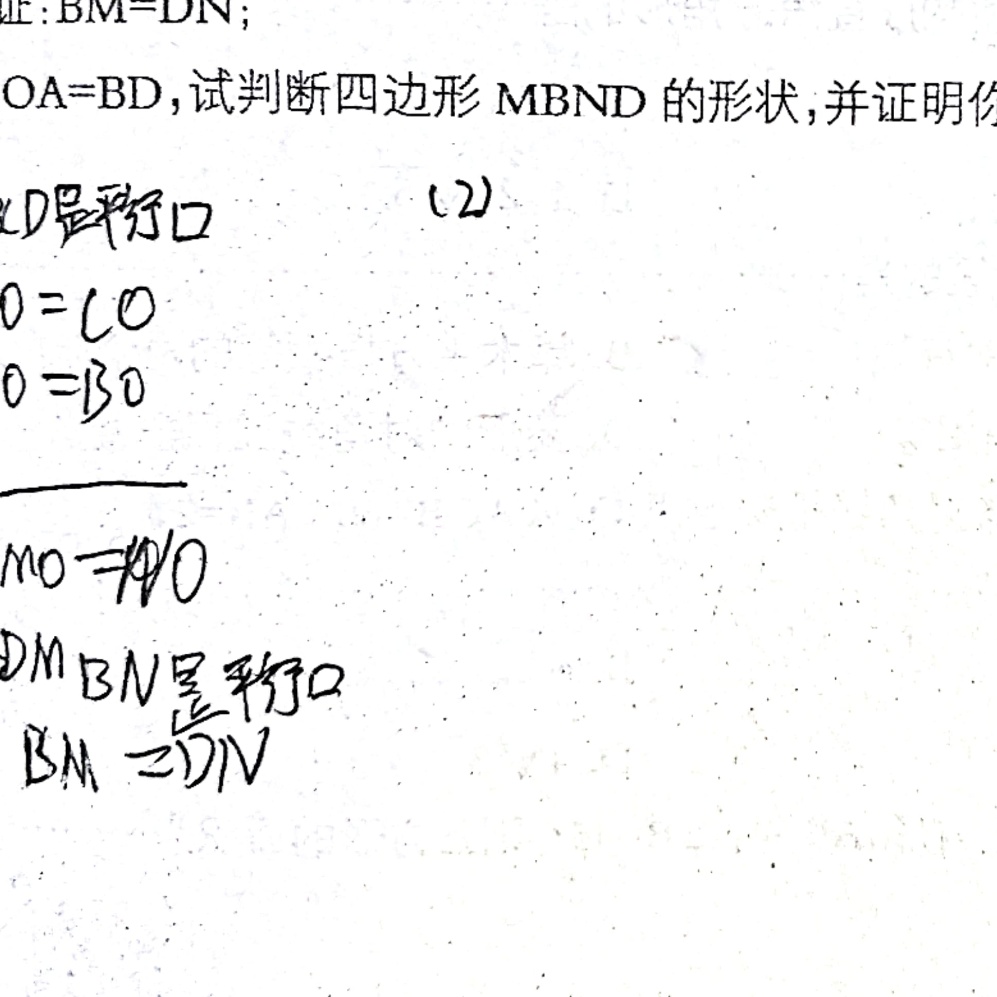 证:BM=DN;
OA=BD,试判断四边形 MBND 的形状,并证明你
CD是平行口
O=CO
O=BO
(2)
MO=NO
DMBN是平行口
BM=DN